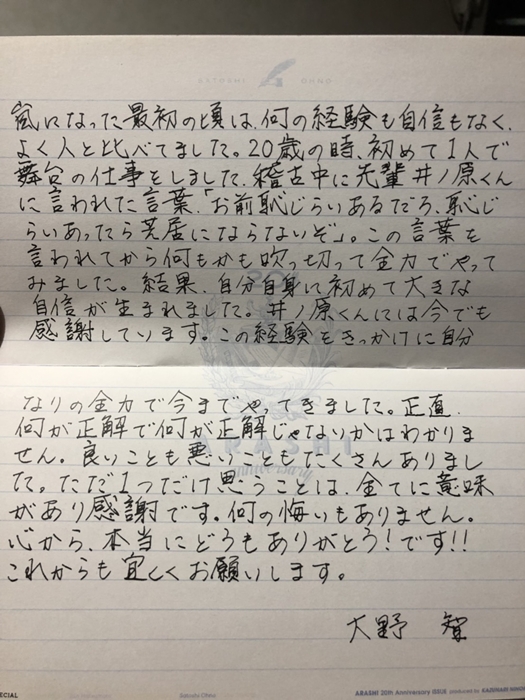 SATOSHI OHNO
嵐になった最初の頃は、何の経験も自信もなく、
よく人と比べてました。20歳の時、初めて1人で
舞台の仕事をしました。稽古中に先輩井ノ原くん
に言われた言葉、「お前恥じらいあるだろ、恥じ
らいあったら芝居にならないぞ」。この言葉を
言われてから何もかも吹っ切って全力でやって
みました。結果、自分自身に初めて大きな
自信が生まれました。井ノ原くんには今でも
感謝しています。この経験をきっかけに自分
なりの全力で今までやってきました。正直、
何が正解で何が正解じゃないかはわかりま
せん。良いことも悪いこともたくさんありまし
た。ただ1つだけ思うことは、全てに意味
があり感謝です。何の悔いもありません。
心から、本当にどうもありがとう!です!!
これからも宜しくお願いします。
大野 智
ARASHI
anniversary
Satoshi Ohno
ARASHI 20th Anniversary ISSUE produced by